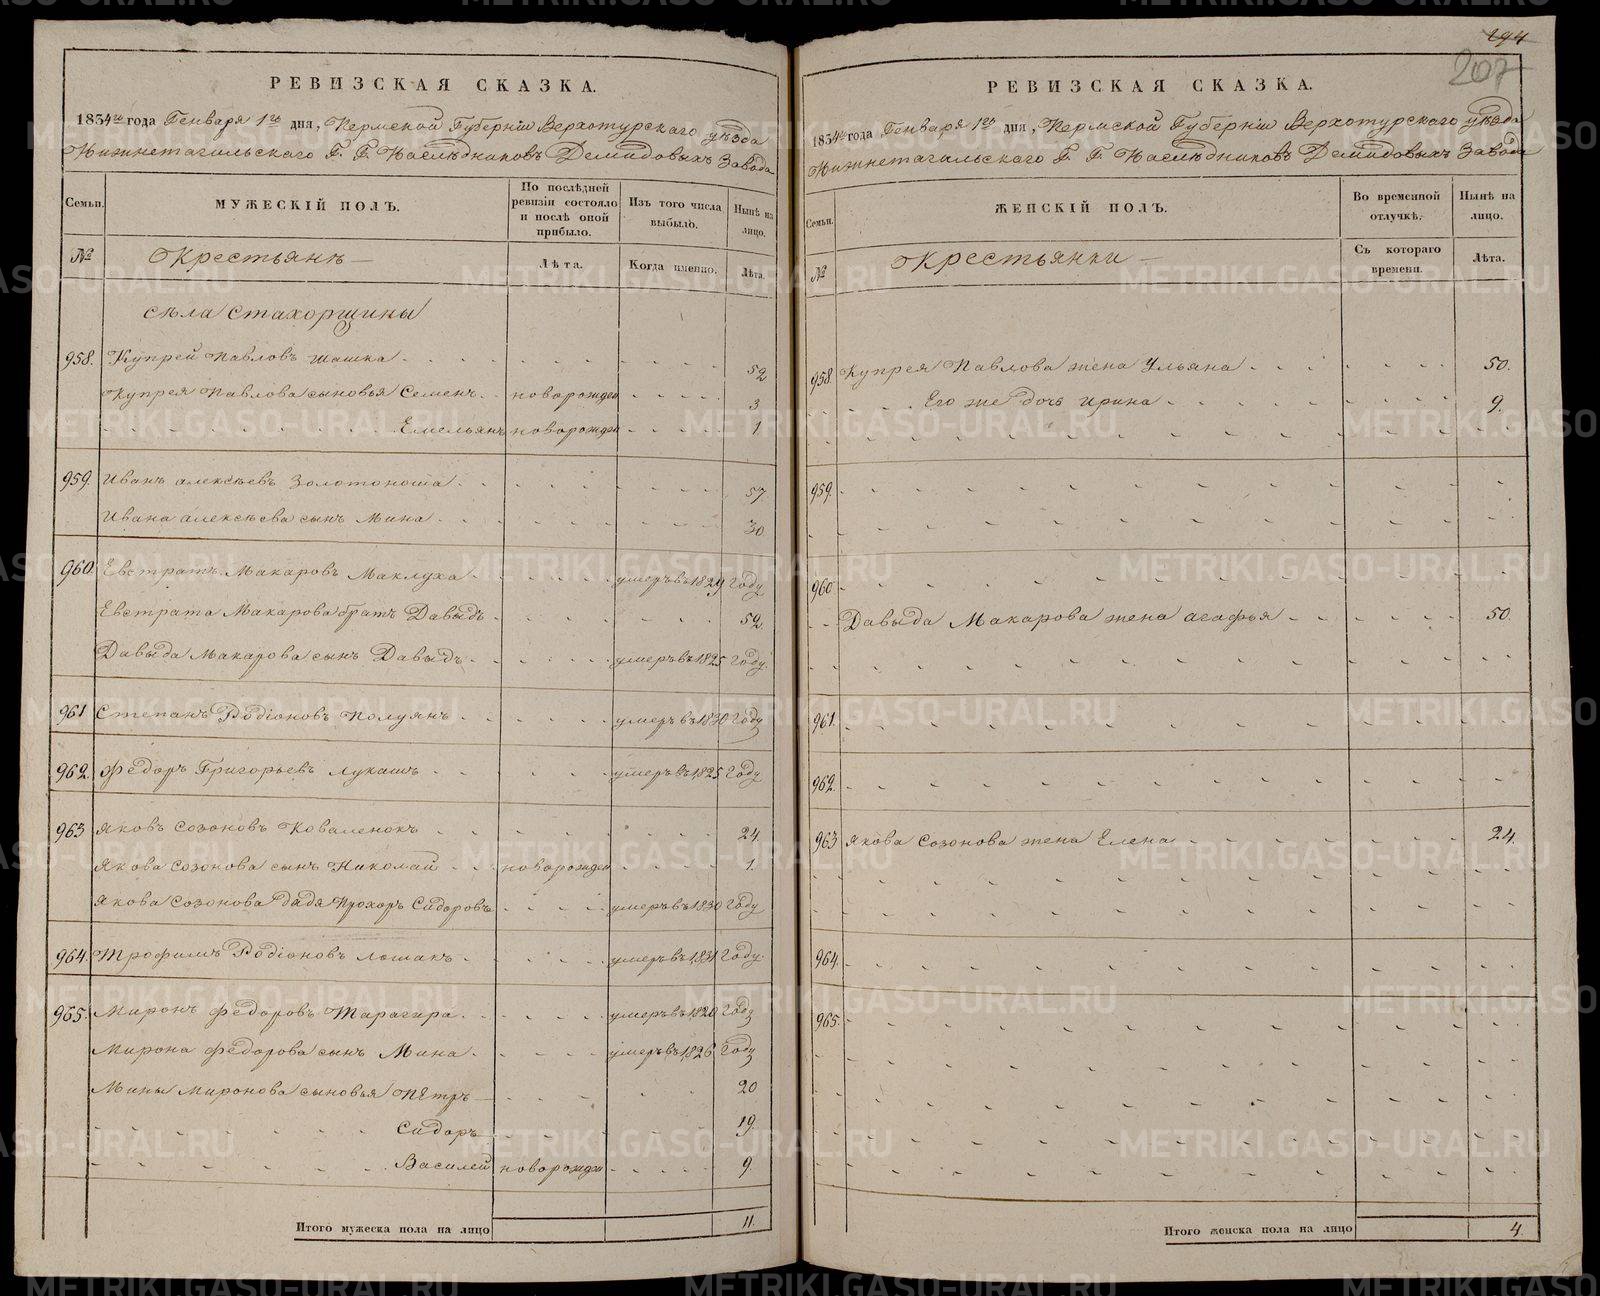 294
207
РЕВИЗСКАЯ СКАЗКА.
1834го года Генваря 1го дня, Пермской Губерніи Верхотурскаго уѣзда
Нижнетагильскаго Г. Г. Наслѣдниковъ Демидовыхъ Завода
Семьи.
МУЖЕСКІЙ ПОЛЪ.
По послѣдней ревизіи состояло и послѣ оной прибыло.
Изъ того числа выбыло.
Нынѣ на лицо.
№
Крестьянѣ
Лѣта.
Когда именно.
Лѣта.
сѣла Стахорщины
958. Купрей Павловъ Шашка 52
Купрея Павлова сыновья Семенъ новорожден 3
Емельянъ новорожден 1
959. Иванъ алексѣевъ Золотоноша 57
Ивана алексѣева сынъ Мина 30
960. Евстратъ Макаровъ Маклуха умеръ въ 1829 году
Евстрата Макарова братъ Давыдъ 52.
Давыда Макарова сынъ Давыдъ умеръ въ 1825 году.
961 Степанъ Родіоновъ Полуянъ умеръ въ 1830 году
962. Федоръ Григорьевъ Лукашъ умеръ въ 1825 году
963 Яковъ Созоновъ Коваленокъ 24.
Якова Созонова сынъ Николай новорожден 1.
Якова Созонова дядя Прохоръ Сидоровъ умеръ въ 1830 году
964. Трофимъ Родіоновъ Лошакъ умеръ въ 1831 году.
965. Миронъ Федоровъ Тарагира умеръ въ 1820 году
Мирона Федорова сынъ Мина умеръ въ 1826 году
Мины Миронова сыновья Пётръ 20
Сидоръ 19.
Василей новорожден 9.
Итого мужеска пола на лицо 11.
РЕВИЗСКАЯ СКАЗКА.
1834го года Генваря 1го дня, Пермской Губерніи Верхотурскаго уѣзда
Нижнетагильскаго Г. Г. Наслѣдниковъ Демидовыхъ Завода
Семьи.
ЖЕНСКІЙ ПОЛЪ.
Во временной отлучкѣ.
Нынѣ на лицо.
№
Крестьянки
Съ котораго времени.
Лѣта.
958. Купрея Павлова жена Ульяна 50.
Его же дочь Ирина 9.
959.
960
Давыда Макарова жена агафья 50.
961.
962.
963 Якова Созонова жена Елена 24.
964.
965.
Итого женска пола на лицо 4.
METRIKI.GASO-URAL.RU